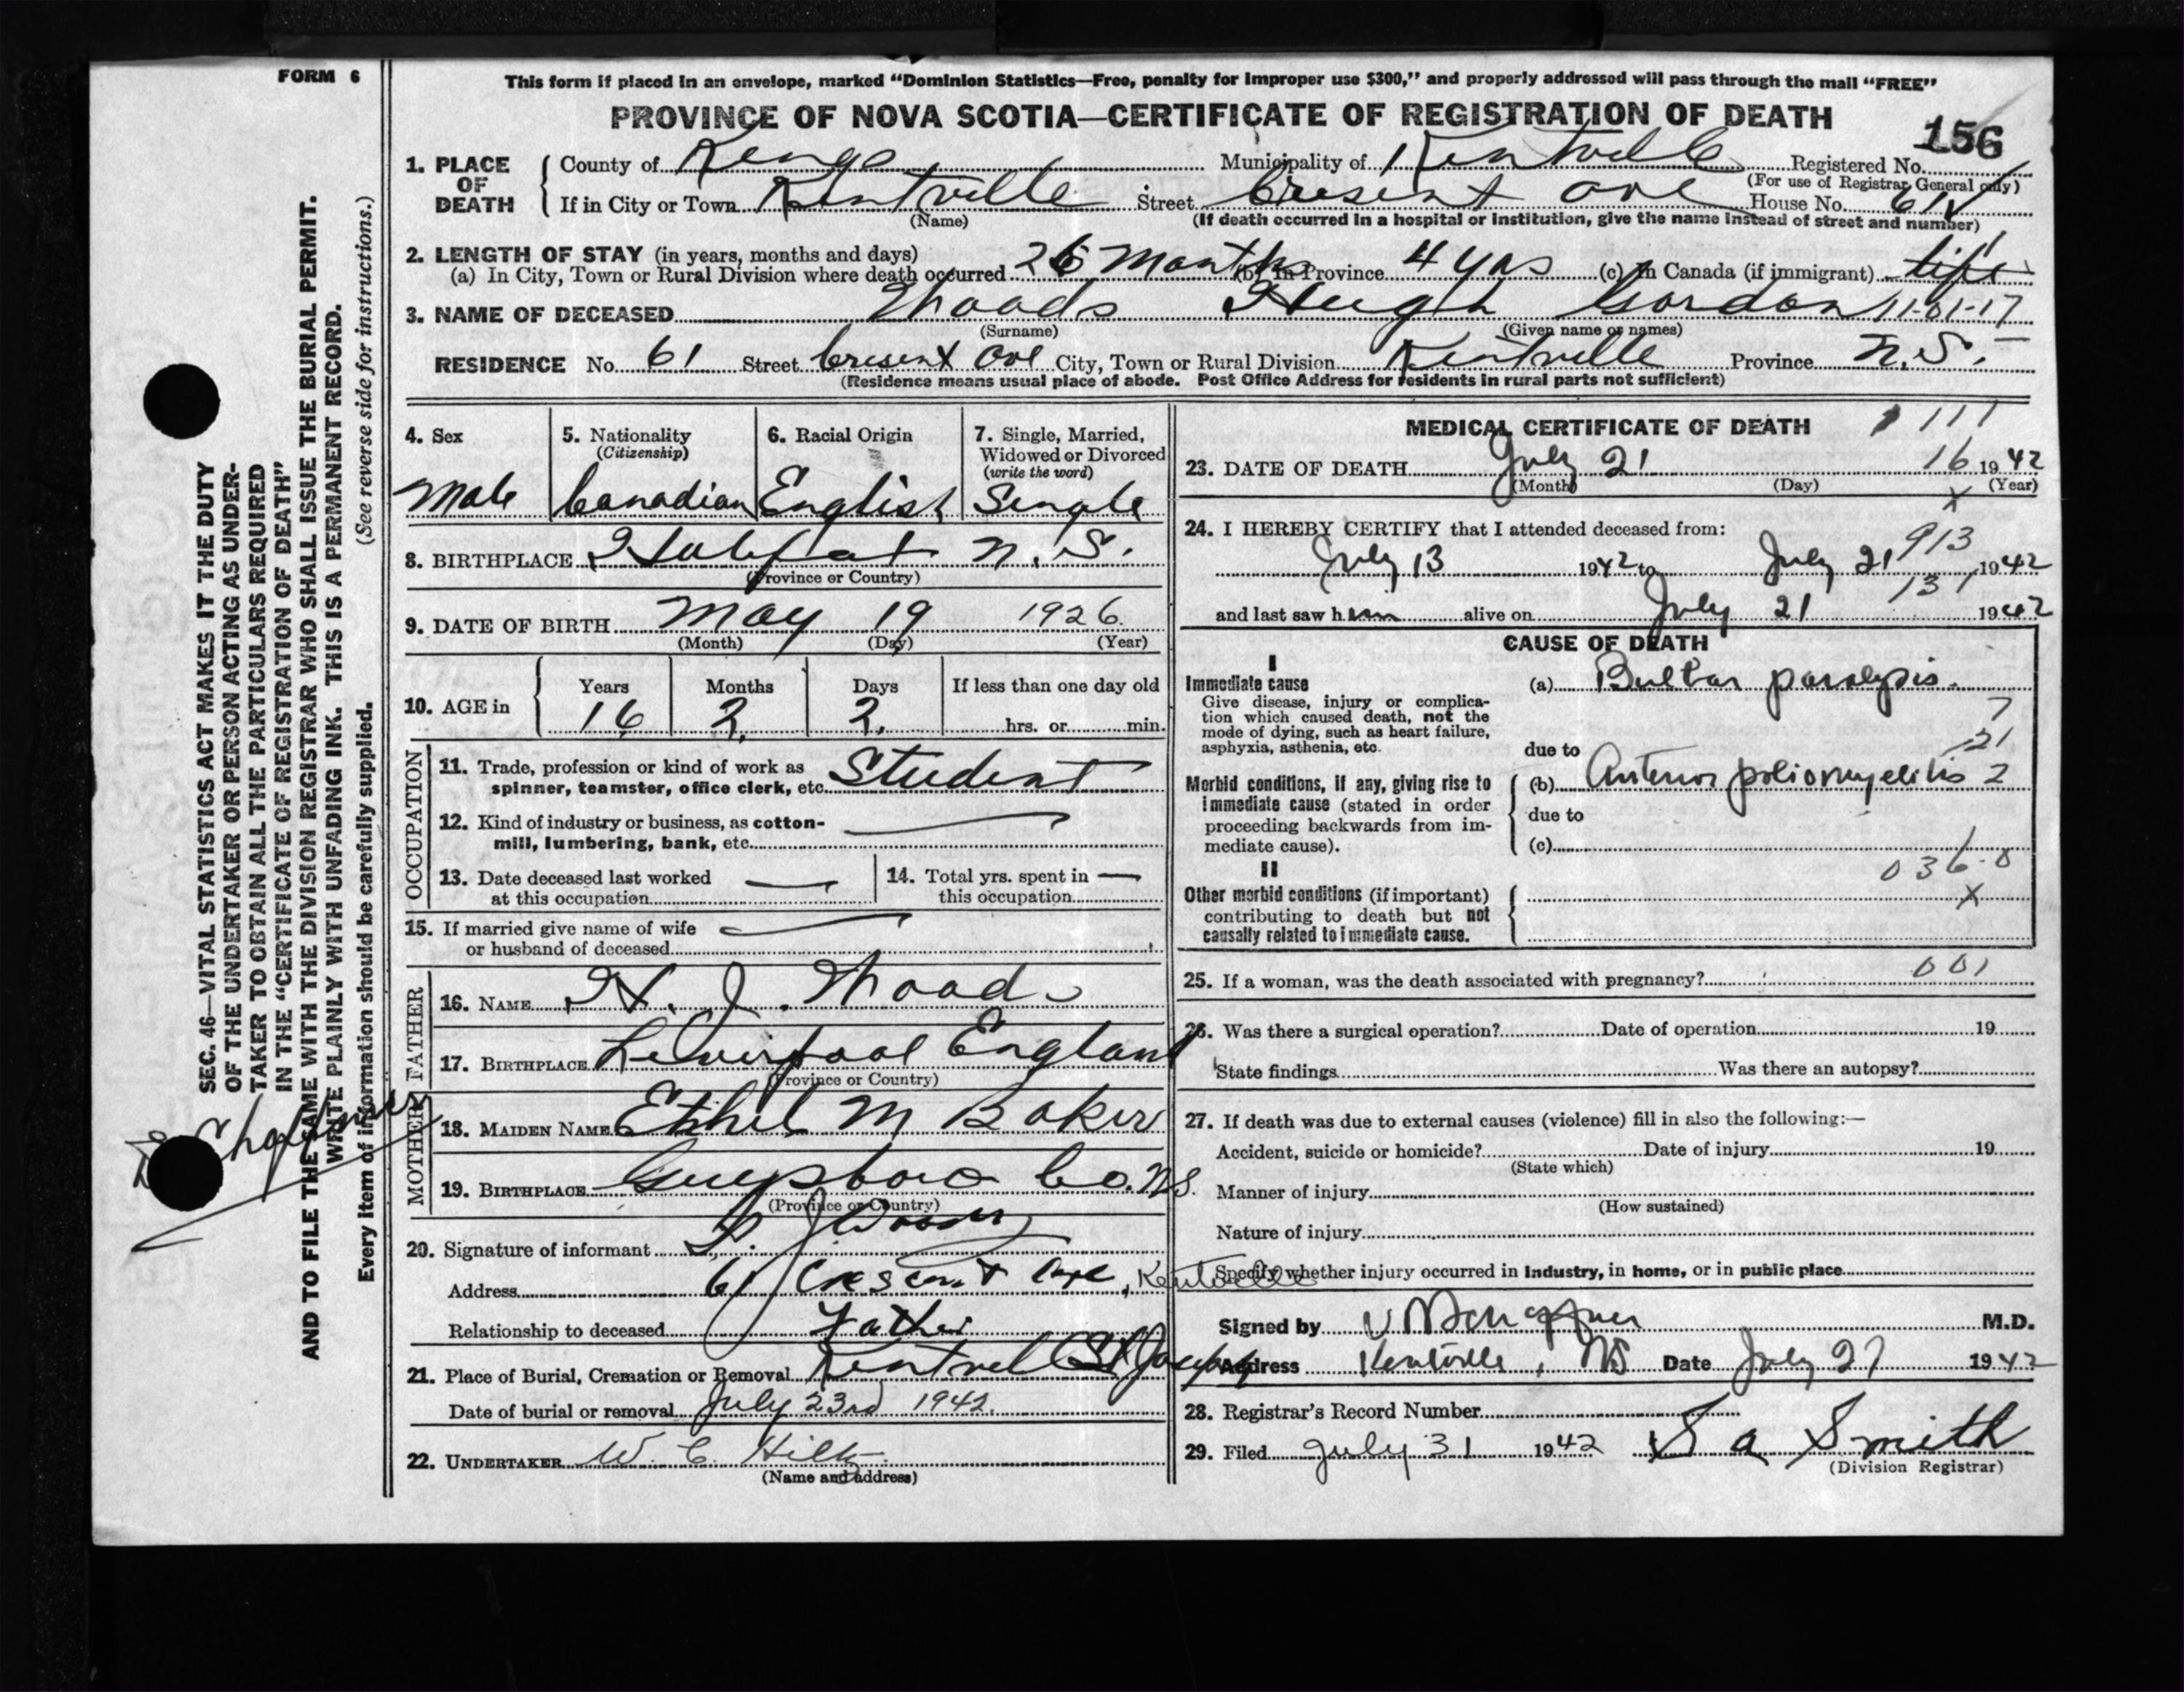 FORM 6
This form if placed in an envelope, marked “Dominion Statistics—Free, penalty for improper use $300,” and properly addressed will pass through the mail “FREE”
PROVINCE OF NOVA SCOTIA—CERTIFICATE OF REGISTRATION OF DEATH
156
1. PLACE OF DEATH
County of Kings Municipality of Kentville Registered No.
(For use of Registrar General only)
If in City or Town Kentville Street Cresent Ave House No. 61
(Name) (If death occurred in a hospital or institution, give the name instead of street and number)
2. LENGTH OF STAY (in years, months and days)
(a) In City, Town or Rural Division where death occurred 26 months (b) In Province 4 yrs (c) In Canada (if immigrant) life
3. NAME OF DECEASED Woods Hugh Gordon 11-01-17
(Surname) (Given name or names)
RESIDENCE No. 61 Street Cresent Ave City, Town or Rural Division Kentville Province N.S.
(Residence means usual place of abode. Post Office Address for residents in rural parts not sufficient)
4. Sex 5. Nationality (Citizenship) 6. Racial Origin 7. Single, Married, Widowed or Divorced (write the word)
Male Canadian English Single
8. BIRTHPLACE N.S.
(Province or Country)
9. DATE OF BIRTH May 19 1926
(Month) (Day) (Year)
10. AGE in Years Months Days If less than one day old
16 2 2 hrs. or min.
OCCUPATION
11. Trade, profession or kind of work as Student
spinner, teamster, office clerk, etc.
12. Kind of industry or business, as cotton-
mill, lumbering, bank, etc.
13. Date deceased last worked at this occupation 14. Total yrs. spent in this occupation
15. If married give name of wife
or husband of deceased
FATHER
16. NAME H. J. Woods
17. BIRTHPLACE Liverpool England
(Province or Country)
MOTHER
18. MAIDEN NAME Ethel M Baker
19. BIRTHPLACE Guysboro Co. NS.
(Province or Country)
20. Signature of informant J Woods
Address 61 Crescent Ave, Kentville
Relationship to deceased Father
21. Place of Burial, Cremation or Removal Kentville St Josephs
Date of burial or removal July 23rd 1942.
22. UNDERTAKER W. C. Hiltz
(Name and address)
MEDICAL CERTIFICATE OF DEATH 111
23. DATE OF DEATH July 21 16 1942
(Month) (Day) (Year)
x
24. I HEREBY CERTIFY that I attended deceased from:
913
July 13 1942 to July 21 1942
131
and last saw him alive on July 21 1942
CAUSE OF DEATH
I
Immediate cause (a) Bulbar paralysis.
Give disease, injury or complica-
tion which caused death, not the
mode of dying, such as heart failure,
asphyxia, asthenia, etc.
7
21
due to
Morbid conditions, if any, giving rise to (b) Anterior poliomyelitis 2
immediate cause (stated in order due to
proceeding backwards from im-
mediate cause). (c)
036.0
II
Other morbid conditions (if important) x
contributing to death but not
causally related to immediate cause.
25. If a woman, was the death associated with pregnancy? 001
26. Was there a surgical operation? Date of operation 19
State findings Was there an autopsy?
27. If death was due to external causes (violence) fill in also the following:—
Accident, suicide or homicide? Date of injury 19
(State which)
Manner of injury
(How sustained)
Nature of injury
Specify whether injury occurred in industry, in home, or in public place
Signed by M.D.
Address Kentville, NS Date July 27 1942
28. Registrar's Record Number
29. Filed July 31 1942 S a Smith
(Division Registrar)
SEC. 46—VITAL STATISTICS ACT MAKES IT THE DUTY
OF THE UNDERTAKER OR PERSON ACTING AS UNDER-
TAKER TO OBTAIN ALL THE PARTICULARS REQUIRED
IN THE “CERTIFICATE OF REGISTRATION OF DEATH”
AND TO FILE THE SAME WITH THE DIVISION REGISTRAR WHO SHALL ISSUE THE BURIAL PERMIT.
WRITE PLAINLY WITH UNFADING INK. THIS IS A PERMANENT RECORD.
Every item of information should be carefully supplied. (See reverse side for instructions.)